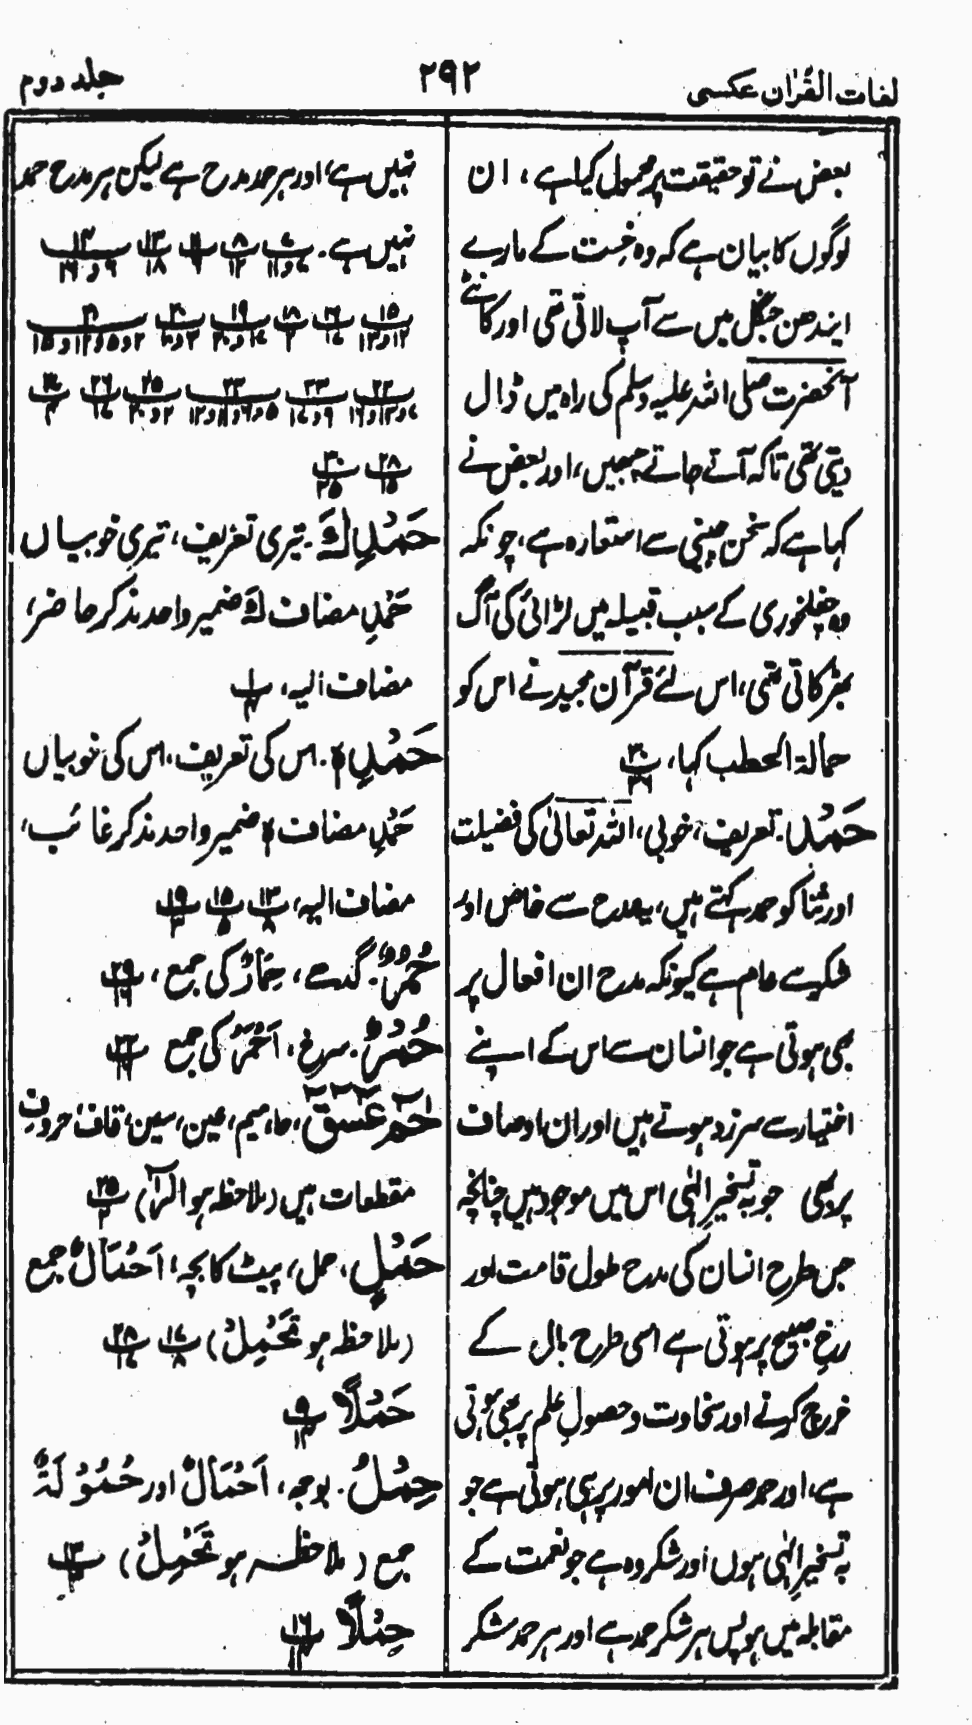 لغات القرآن عکسی
۲۹۲
جلد دوم
بعض نے تو حقیقت پر محمول کیا ہے، ان
لوگوں کا بیان ہے کہ وہ خِست کے مارے
ایندھن جنگل میں سے آپ لاتی تھی اور کانٹے
آنحضرت صلی اللہ علیہ وسلم کی راہ میں ڈال
دیتی تھی تاکہ آتے جاتے چبھیں، اور بعض نے
کہا ہے کہ سخن چینی سے استعارہ ہے، چونکہ
وہ چغلخوری کے سبب قبیلہ میں لڑائی کی آگ
بھڑکاتی تھی، اس لئے قرآن مجید نے اس کو
حمالۃ الحطب کہا، ۳۰/۳۶
حَمْدُ. تعریف، خوبی، اللہ تعالیٰ کی فضیلت
اور ثنا کو حمد کہتے ہیں، یہ مدح سے خاص اور
شکر سے عام ہے کیونکہ مدح ان افعال پر
بھی ہوتی ہے جو انسان سے اس کے اپنے
اختیار سے سرزد ہوتے ہیں اور ان اوصاف
پر بھی جو بہ تسخیرِ الٰہی اس میں موجود ہیں چنانچہ
جس طرح انسان کی مدح طول قامت اور
رخِ صبیح پر ہوتی ہے اسی طرح مال کے
خرچ کرنے اور سخاوت و حصولِ علم پر بھی ہوتی
ہے، اور حمد صرف ان امور پر ہی ہوتی ہے جو
بہ تسخیرِ الٰہی ہوں اور شکر وہ ہے جو نعمت کے
مقابلہ میں ہو پس ہر شکر حمد ہے اور ہر حمد شکر
نہیں ہے، اور ہر حمد مدح ہے لیکن ہر مدح حمد
نہیں ہے.
۲۸/۱۵ ۳۰/۳۵
حَمْدِكَ. تیری تعریف، تیری خوبیاں
حَمْدِ مضاف كَ ضمیر واحد مذکر حاضر،
مضاف الیہ،
حَمْدِهٖ. اس کی تعریف، اس کی خوبیاں
حَمْدِ مضاف هٖ ضمیر واحد مذکر غائب،
مضاف الیہ، ۱۳/۸ ۱۵/۵ ۱۹/۳
حُمُرٌ. گدھے، حِمَارٌ کی جمع، ۲۹/۱۶
حُمْرٌ. سرخ، اَحْمَرُ کی جمع ۲۲/۱۶
حٰمٓ عٓسٓقٓ، حا، میم، عین، سین، قاف، حروفِ
مقطعات ہیں (ملاحظہ ہو الٓرٰ) ۲۵/۲
حَمْلٍ، حمل، پیٹ کا بچہ، اَحْمَالٌ جمع
(ملاحظہ ہو تَحْمِلُ) ۱۷/۸ ۲۸/۱۷
حَمْلًا ۹/۱۴
حِمْلُ. بوجھ، اَحْمَالٌ اور حُمُوْلَةٌ
جمع (ملاحظہ ہو تَحْمِلُ)
حِمْلًا